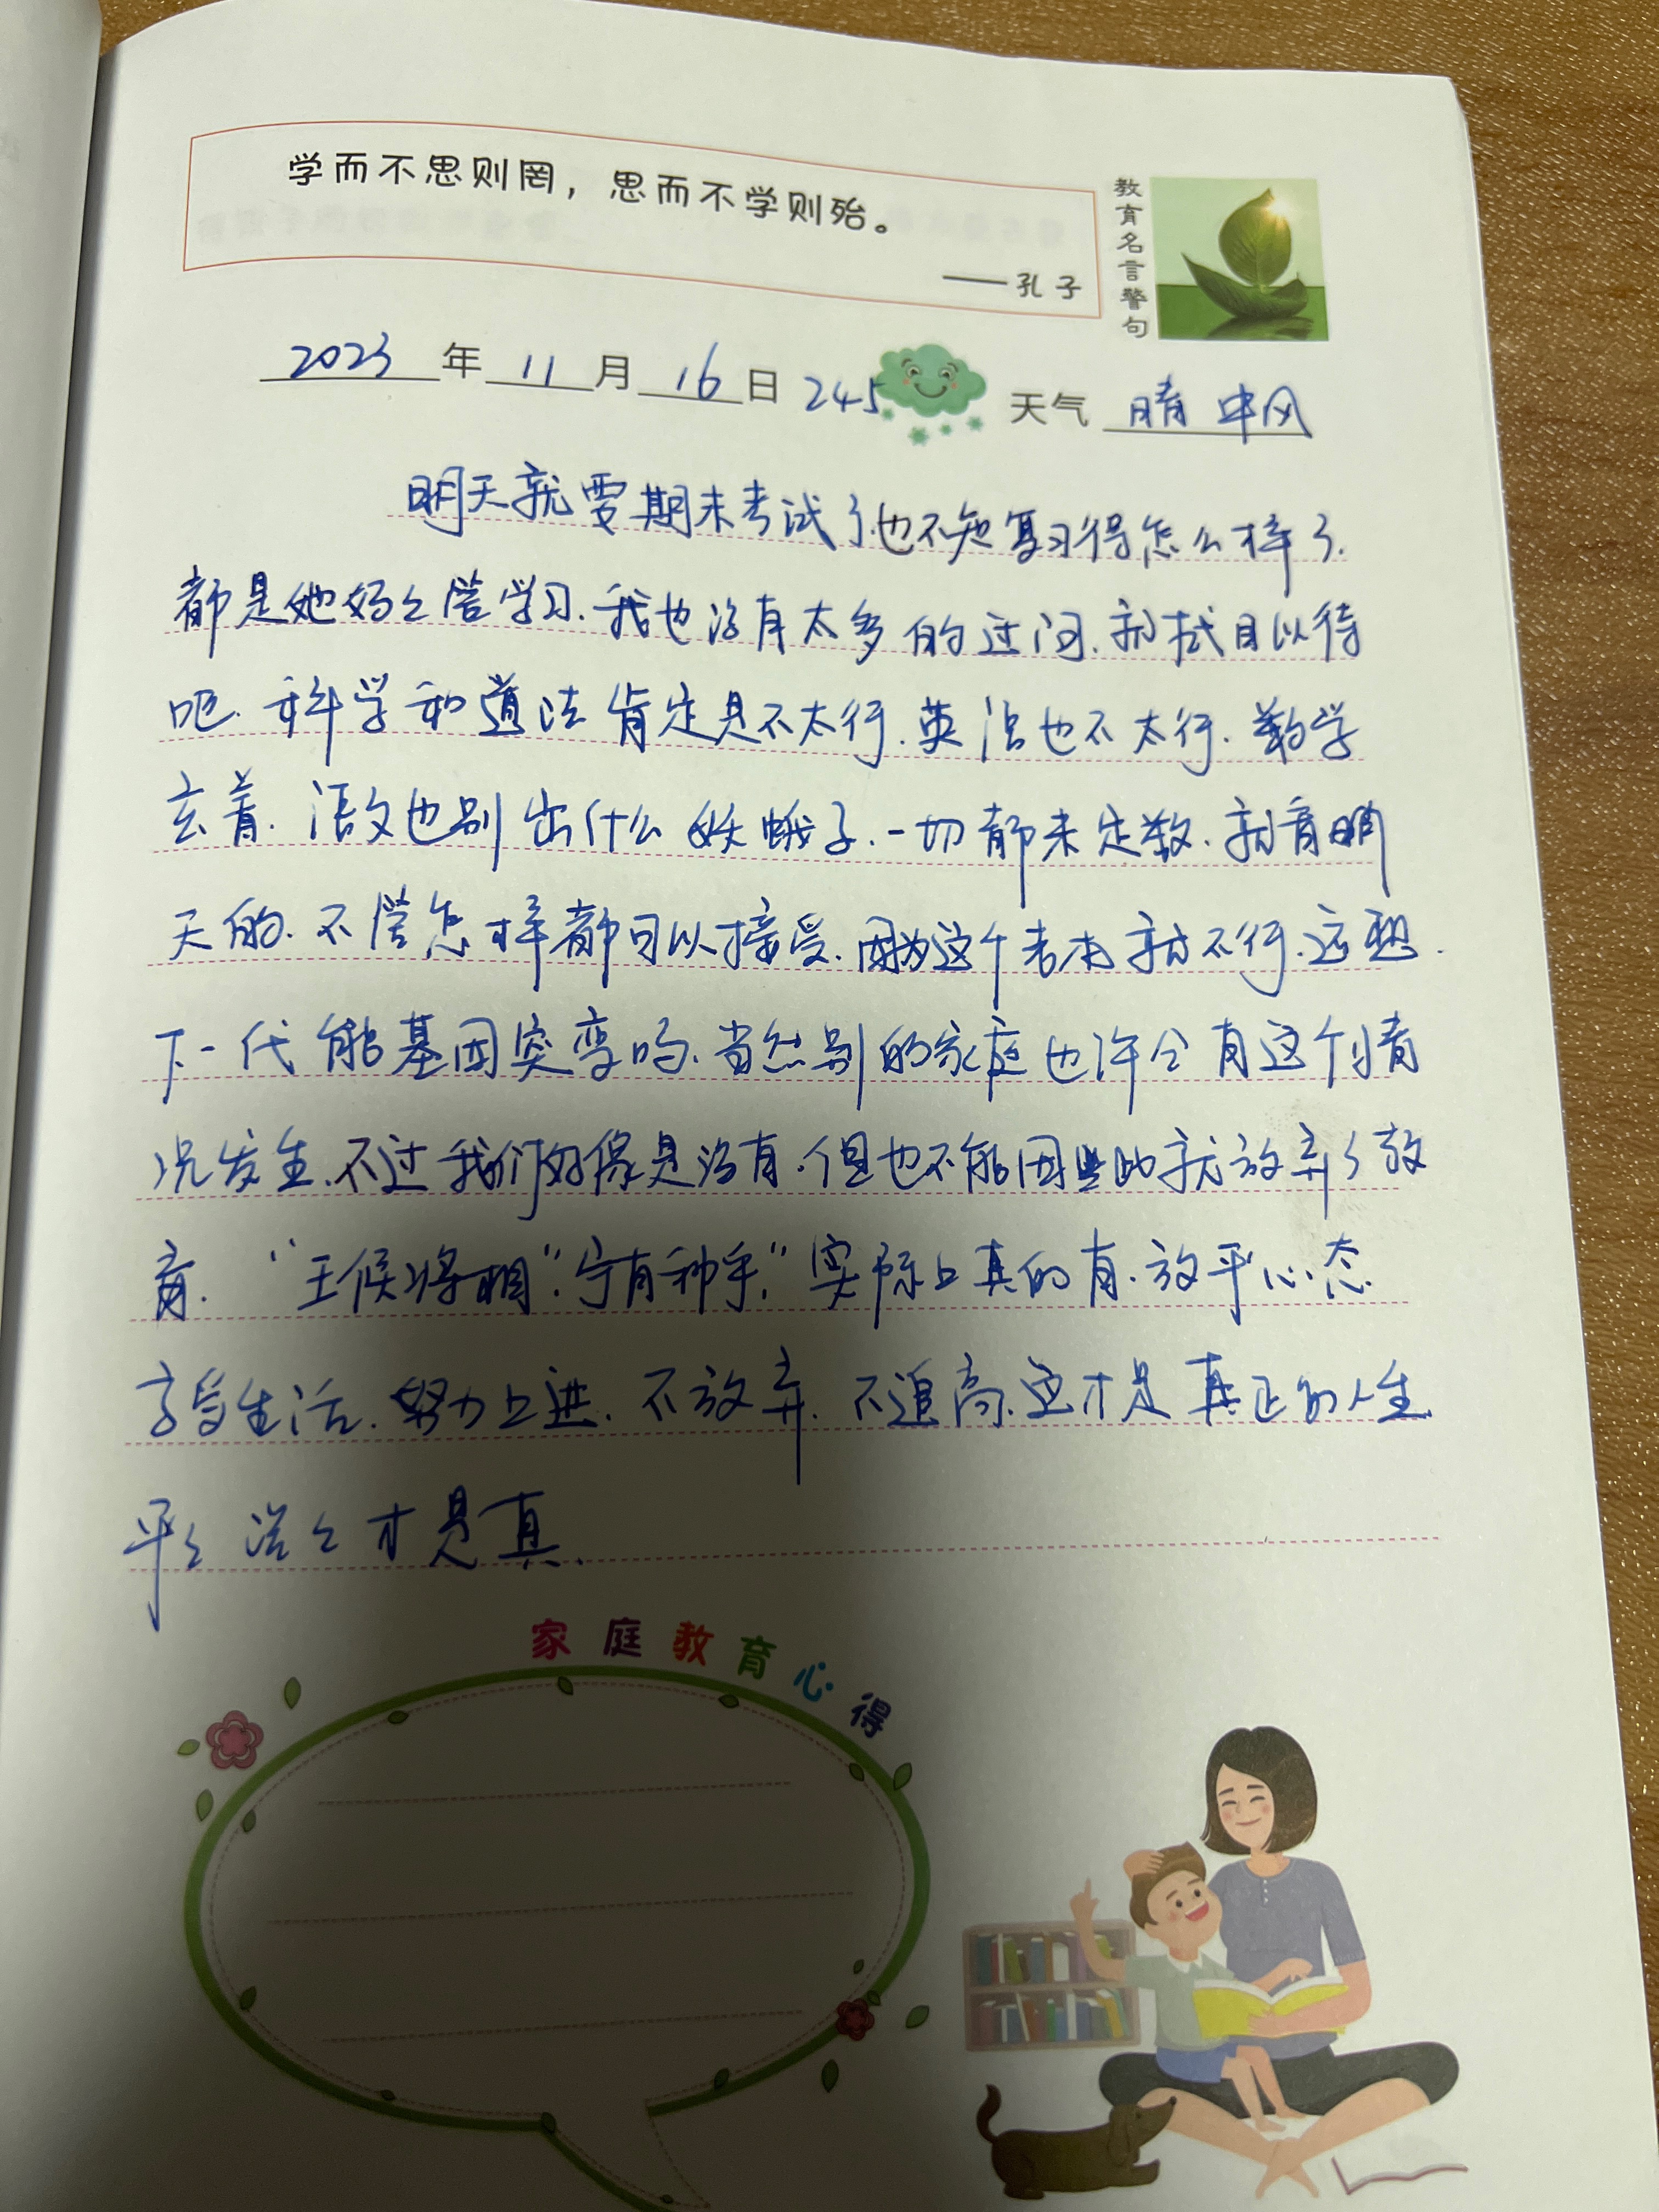 学而不思则罔，思而不学则殆。
——孔子
教育名言警句
2023年11月16日 245 天气 晴 中风
明天就要期末考试了.也不知复习得怎么样了.
都是她妈々管学习.我也没有太多的过问.就拭目以待
吧.科学和道法肯定是不太行.英语也不太行.数学
玄着.语文也别出什么妖蛾子.一切都未定数.就看明
天的.不管怎样都可以接受.因为这个老本就不行.还想.
下一代能基因突变吗.当然别的家庭也许会有这个情
况发生.不过我们好像是没有.但也不能因此就放弃了教
育.“王侯将相”.宁有种乎.”实际上真的有.放平心态
享受生活.努力上进.不放弃.不追高.这才是真正的人生
平々淡々才是真.
家庭教育心得